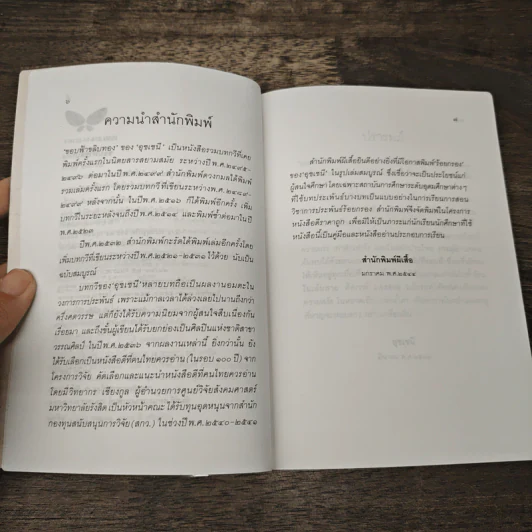 ความนำสำนักพิมพ์
'ขอบฟ้าขลิบทอง' ของ 'อุชเชนี' เป็นหนังสือรวมบทกวีที่เคย
พิมพ์ครั้งแรกในนิตยสารสยามสมัย ระหว่างปีพ.ศ.๒๔๙๕-
๒๔๙๖ ต่อมาในปีพ.ศ.๒๔๙๙ สำนักพิมพ์ดวงกมลได้พิมพ์
รวมเล่มครั้งแรก โดยรวมบทกวีที่เขียนระหว่างพ.ศ.๒๔๘๙-
๒๔๙๙ หลังจากนั้นในปีพ.ศ.๒๕๑๖ ก็ได้พิมพ์อีกครั้ง เพิ่ม
บทกวีในระยะหลังจนถึงปีพ.ศ.๒๕๑๔ และพิมพ์ซ้ำต่อมาในปี
พ.ศ.๒๕๒๓
ปีพ.ศ.๒๕๓๒ สำนักพิมพ์กะรัตได้พิมพ์เล่มอีกครั้งโดย
เพิ่มบทกวีที่เขียนระหว่างปีพ.ศ.๒๕๒๑-๒๕๓๑ไว้ด้วย นับเป็น
ฉบับสมบูรณ์
บทกวีของ'อุชเชนี'หลายบทถือเป็นผลงานอมตะใน
วงการการประพันธ์ เพราะแม้กาลเวลาได้ล่วงเลยไปนานถึงกว่า
ครึ่งศตวรรษ แต่ก็ยังได้รับความนิยมจากผู้สนใจสืบเนื่องกัน
เรื่อยมา และถึงขั้นผู้เขียนได้รับยกย่องเป็นศิลปินแห่งชาติสาขา
วรรณศิลป์ ในปีพ.ศ.๒๕๓๖ จากผลงานเหล่านี้ ยิ่งกว่านั้น ยัง
ได้รับเลือกเป็นหนังสือดีที่คนไทยควรอ่าน (ในรอบ ๑๐๐ ปี) จาก
โครงการวิจัย คัดเลือกและแนะนำหนังสือดีที่คนไทยควรอ่าน
โดยมีวิทยากร เชียงกูล ผู้อำนวยการศูนย์วิจัยสังคมศาสตร์
มหาวิทยาลัยรังสิต เป็นหัวหน้าคณะ ได้รับทุนอุดหนุนจากสำนัก
กองทุนสนับสนุนการวิจัย (สกว.) ในช่วงปีพ.ศ.๒๕๔๐-๒๕๔๑
สำนักพิมพ์ผีเสื้อยินดีอย่างยิ่งที่มีโอกาสพิมพ์ร้อยกรอง
ของ 'อุชเชนี' ในรูปเล่มสมบูรณ์ ซึ่งเชื่อว่าจะเป็นประโยชน์แก่
ผู้สนใจศึกษา โดยเฉพาะสถาบันการศึกษาระดับอุดมศึกษาต่างๆ
ที่ใช้บทประพันธ์บางบทเป็นแบบอย่างในการเรียนการสอน
วิชาการประพันธ์ร้อยกรอง สำนักพิมพ์จึงจัดพิมพ์ในโครงการ
หนังสือดีราคาถูก เพื่อมีให้เป็นภาระแก่นักเรียนนักศึกษาที่ใช้
หนังสือนี้เป็นคู่มือและหนังสืออ่านประกอบการเรียน
สำนักพิมพ์ผีเสื้อ
มกราคม พ.ศ.๒๕๔๔